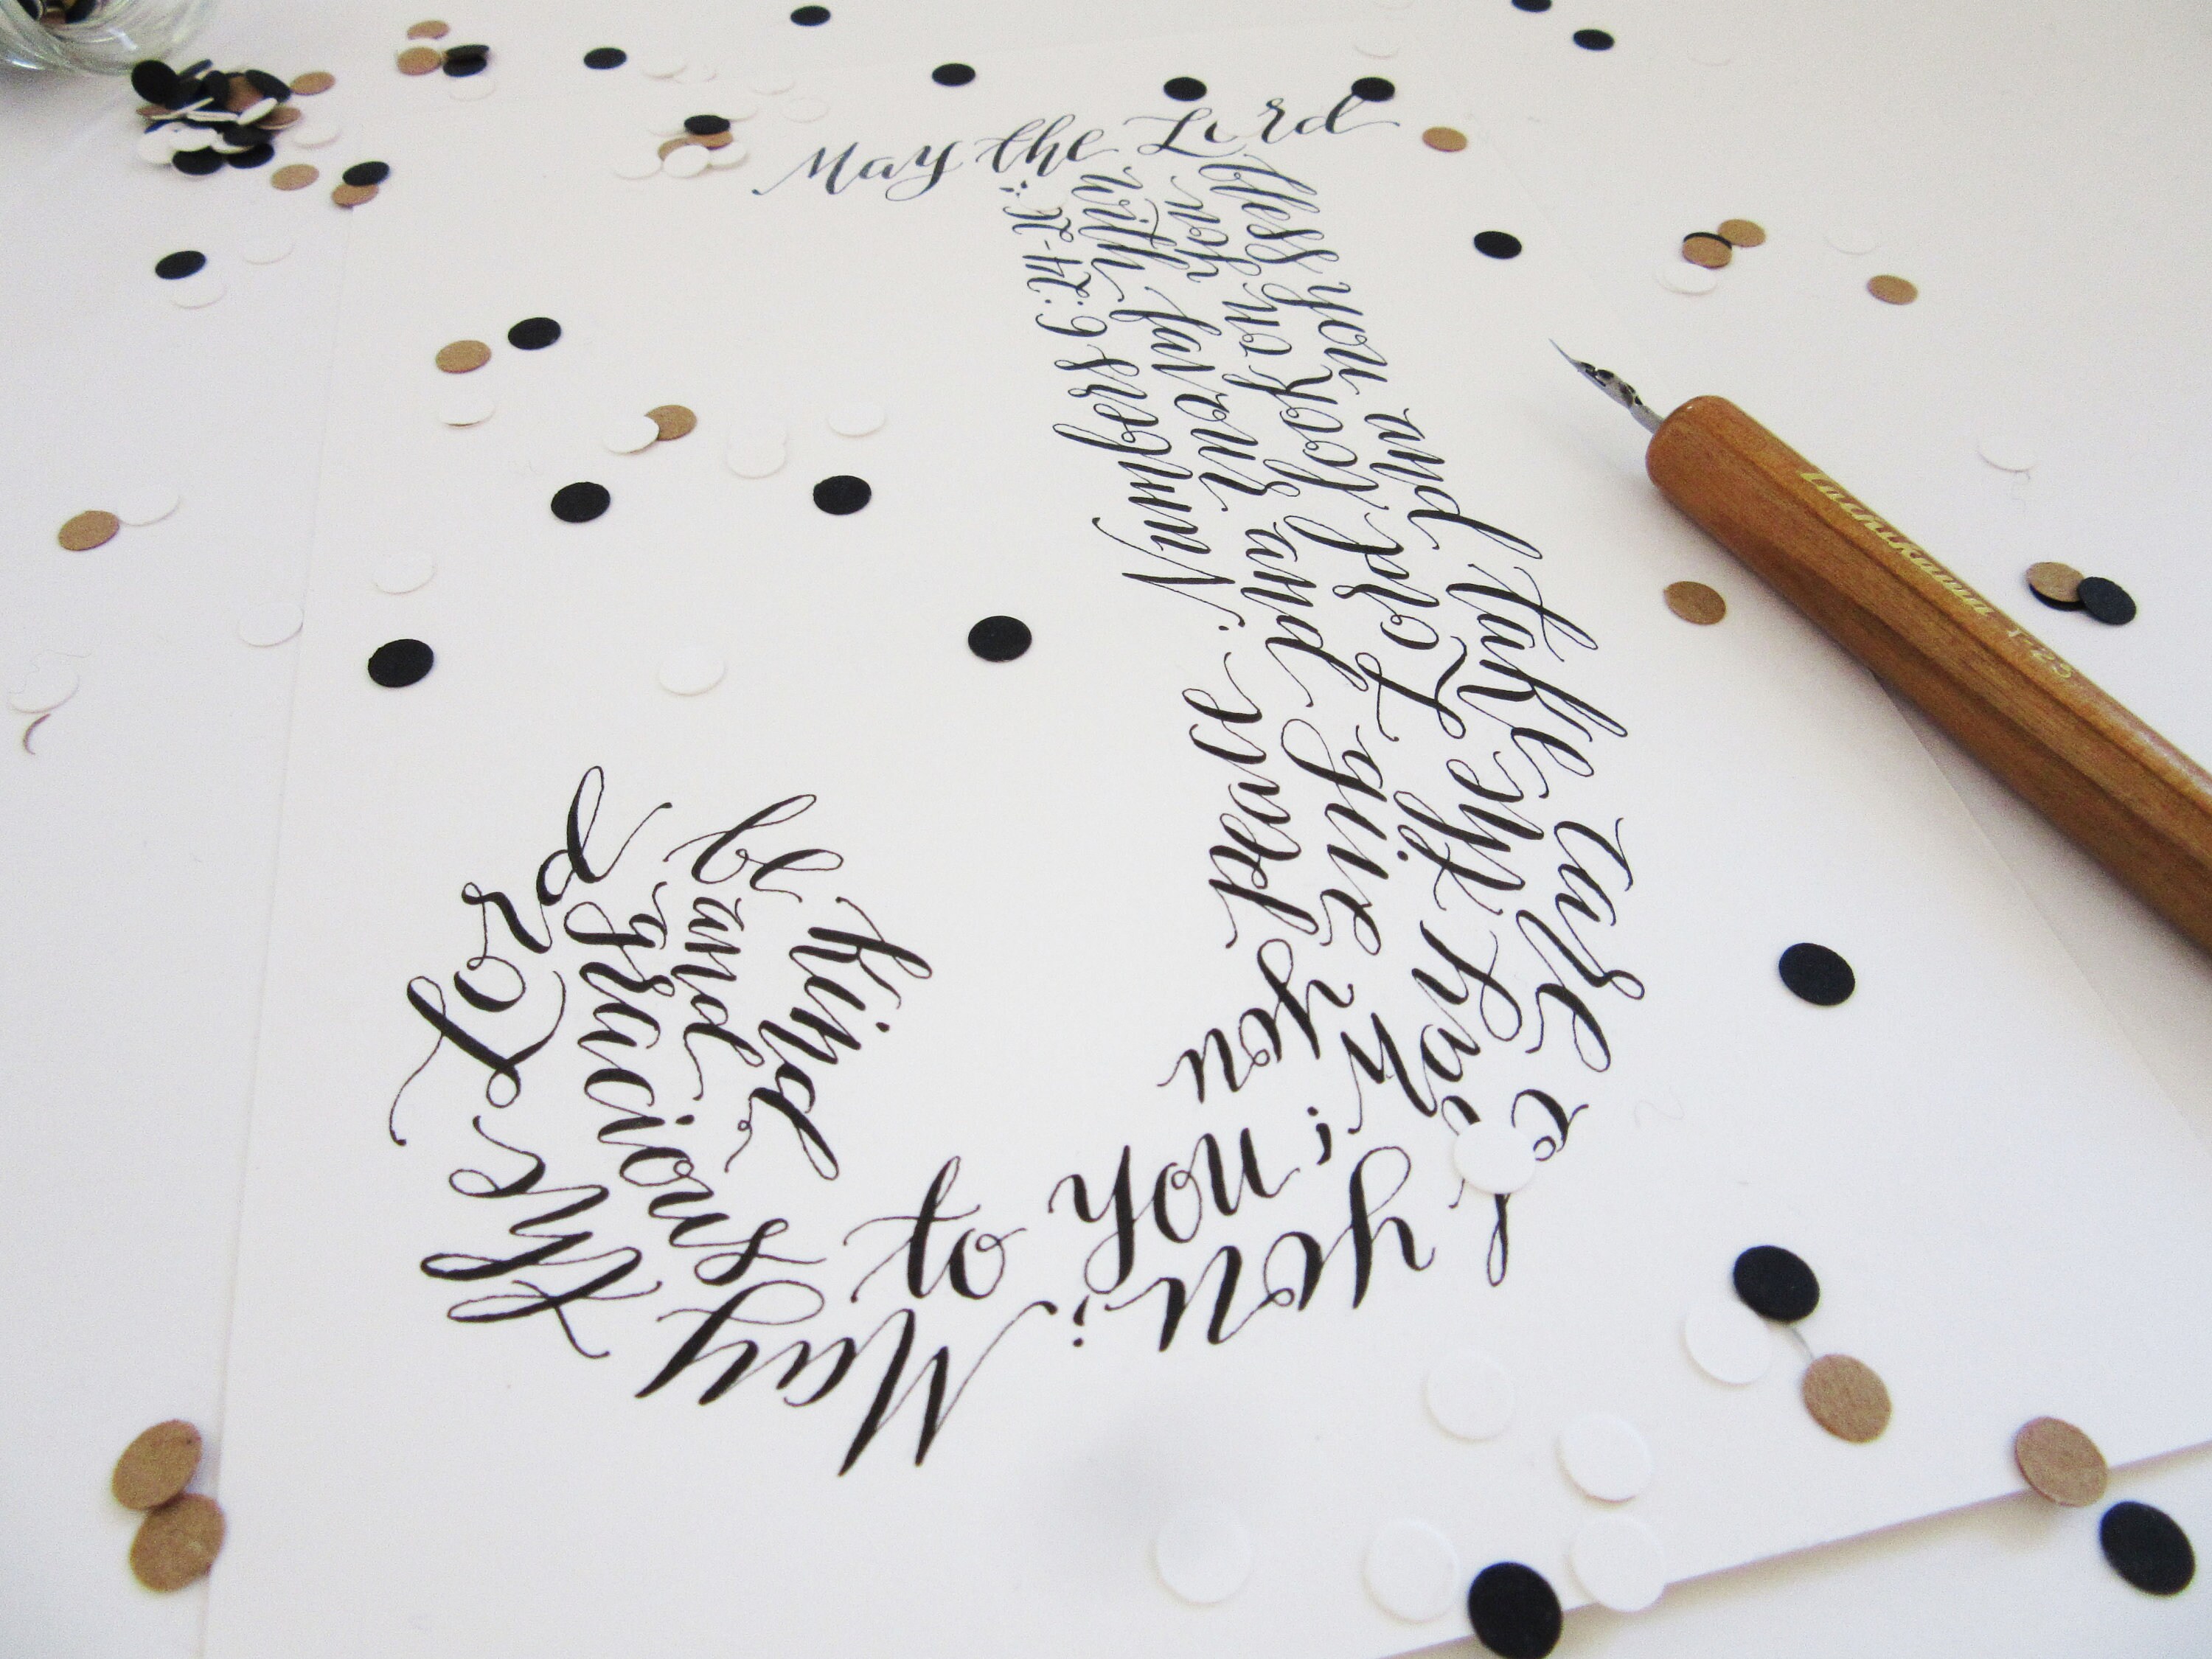 May the Lord
bless you and take care of you;
May the Lord
be kind
and gracious to you;
May the Lord look on you
with favour and give you
peace. Numbers 6:24-26
Tachikawa T-25